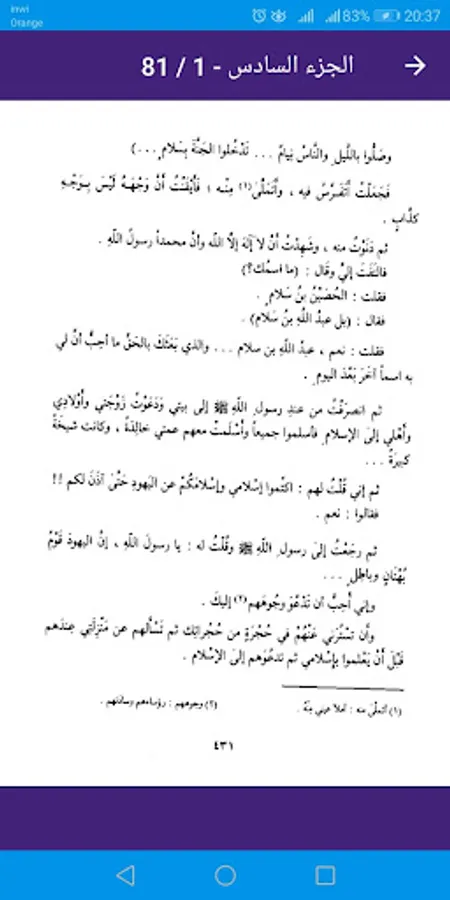 inwi
Orange
83% 20:37
الجزء السادس - 1 / 81
وصَلُّوا بِاللَّيلِ والنَّاسُ نِيامٌ ... تَدْخُلوا الجَنَّةَ بِسَلامٍ ...)
فَجَعَلْتُ أَتَفَرَّسُ فيه ، وأَتَمَلَّىٰ(١) مِنْه ؛ فَأَيْقَنْتُ أَنَّ وَجْهَهُ لَيْسَ بِوَجْهِ
كذَّابٍ .
ثم دَنَوْتُ منه ، وشَهِدْتُ أَنْ لا إلٰهَ إلَّا اللّه وأنَّ محمداً رسولُ اللّهِ .
فالْتَفَتَ إليَّ وقال : (ما اسمُك؟)
فقلت : الحُصَيْنُ بنُ سَلامٍ .
فقال : (بل عبدُ اللّهِ بنُ سَلام) .
فقلت : نعم ، عبدُ اللّهِ بن سلام ... والذي بَعَثَكَ بالحَقِّ ما أُحِبُّ أنَّ لي
به اسماً آخَرَ بَعْدَ اليومِ .
ثم انصرَفْتُ من عندِ رسولِ اللّهِ ﷺ إلى بيتي ودَعَوْتُ زَوْجَتي وأَوْلادِي
وأَهْلي إلى الإسلامِ فأسلموا جميعاً وأَسْلَمَتْ معهم عمتي خالِدَةُ ، وكانت شيخَةً
كبيرَةً ...
ثم إني قُلْتُ لهم : اكْتُموا إسْلامي وإسْلامَكُمْ عن اليَهودِ حَتَّىٰ آذَنَ لكم !!
فقالوا : نعم .
ثم رجَعْتُ إلىٰ رسولِ اللّهِ ﷺ وقُلْتُ له : يا رسولَ اللّهِ ، إنَّ اليهودَ قَوْمُ
بُهْتانٍ وباطِلٍ ...
وإني أُحِبُّ أن تَدْعُوَ وجُوهَهم(٢) إليكَ .
وأن تَسْتُرَني عَنْهُمْ في حُجْرَةٍ من حُجُراتِك ثم تَسْأَلهم عن مَنْزِلَتي عِنْدَهم
قَبْلَ أَنْ يَعْلَموا بإسْلامي ثم تدعُوَهم إلىٰ الإسْلامِ .
(١) أتملّىٰ منه : أملأ عيني مِنْهُ . (٢) وجوههم : رؤساءهم وسادتهم .
٤٣١